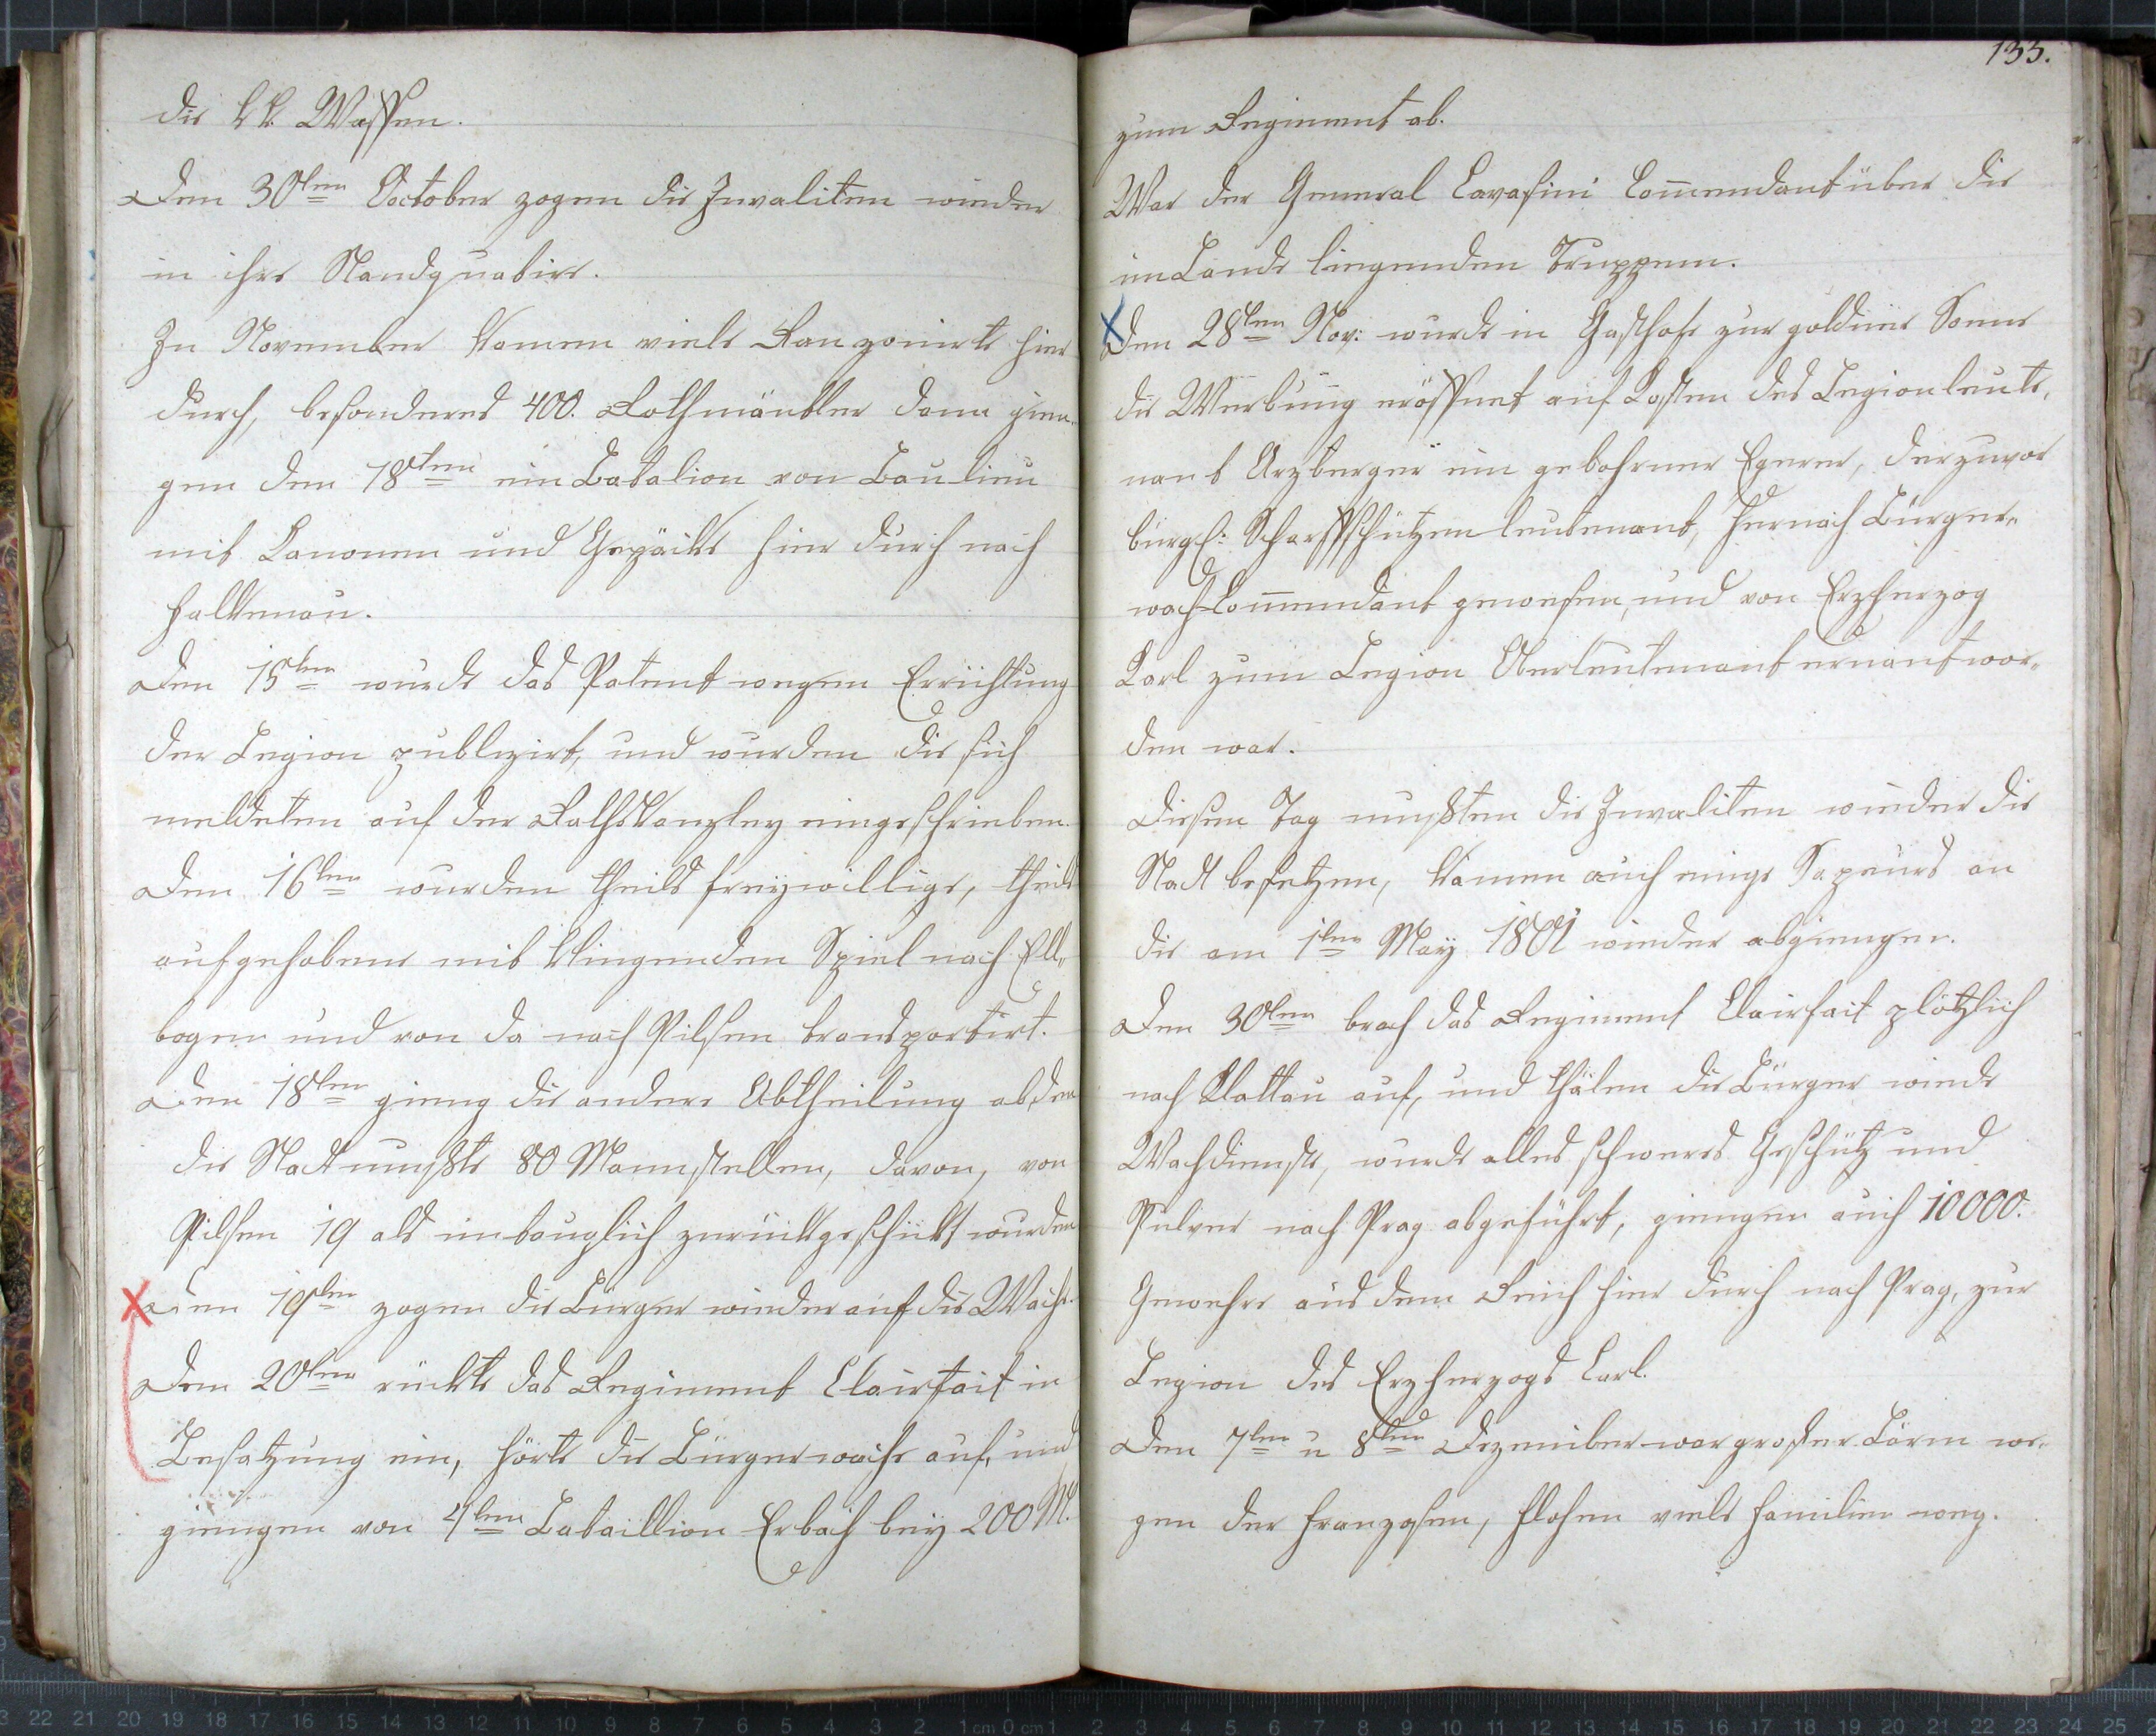 die kk. Waffen.
Den 30ten October zogen die Invaliten wieder
in ihre Standquatire.
In November kamen viele Ranzonirte hier
durch, besonderes 400. Rothmäntler dann gien„
gen den 18ten ein Batalion von Baulieu
mit Canonen und Gepäcke hier durch nach
Falkenau.
Den 15ten wurde das Patent wegen Errichtung
der Legion publizirt, und wurden die sich
meldeten auf der Rathskanzley eingeschrieben.
Den 16ten wurden theils freywillige, theils
aufgehobene mit klingenden Spiel nach Ell„
bogen und von da nach Pilsen transportirt.
Den 18ten gieng die andere Abtheilung ab, den
die Stadt mußte 80 Mann stellen, davon, von
Pilsen 19 als untauglich zurückgeschickt wurden
Den 19ten zogen die Bürger wieder auf die Wache.
Den 20ten rückte das Regiment Clairfait in
Besatzung ein, hörte die Bürgerwache auf, und
giengen von 4ten Bataillion Erbach bey 200 M.
133.
zum Regiment ab.
War der General Cavasini Com̄endant über die
im Lande liegenden Truppen.
Den 28ten Nov: wurde in Gasthofe zur goldene Sonne
die Werbung eröffnet auf Kosten des Legionleute„
nant Arzberger ein gebohrner Egerer, der zuvor
bürgl: Scharffschützen leutenant, hernach Bürger„
wach Com̄endant gewesen, und von Erzherzog
Karl zum Legion Oberleutenant ernant wor„
den war.
Diesen Tag mußten die Invaliten wieder die
Stadt besetzen, kamen auch einige Sapeurs an
die am 1ten May 1801 wieder abgiengen.
Den 30ten brach das Regiment Clairfait plötzlich
nach Klattau auf, und thäten die Bürger wiede
Wachdienste, wurde alles schweres Geschütz und
Pulver nach Prag abgeführt, giengen auch 10000.
Gewehre aus dem Reich hier durch nach Prag, zur
Legion des Erzherzogs Carl.
Den 7ten u 8ten Dezember war großer Lärm we„
gen der Franzosen, flohen viele Familien weg.